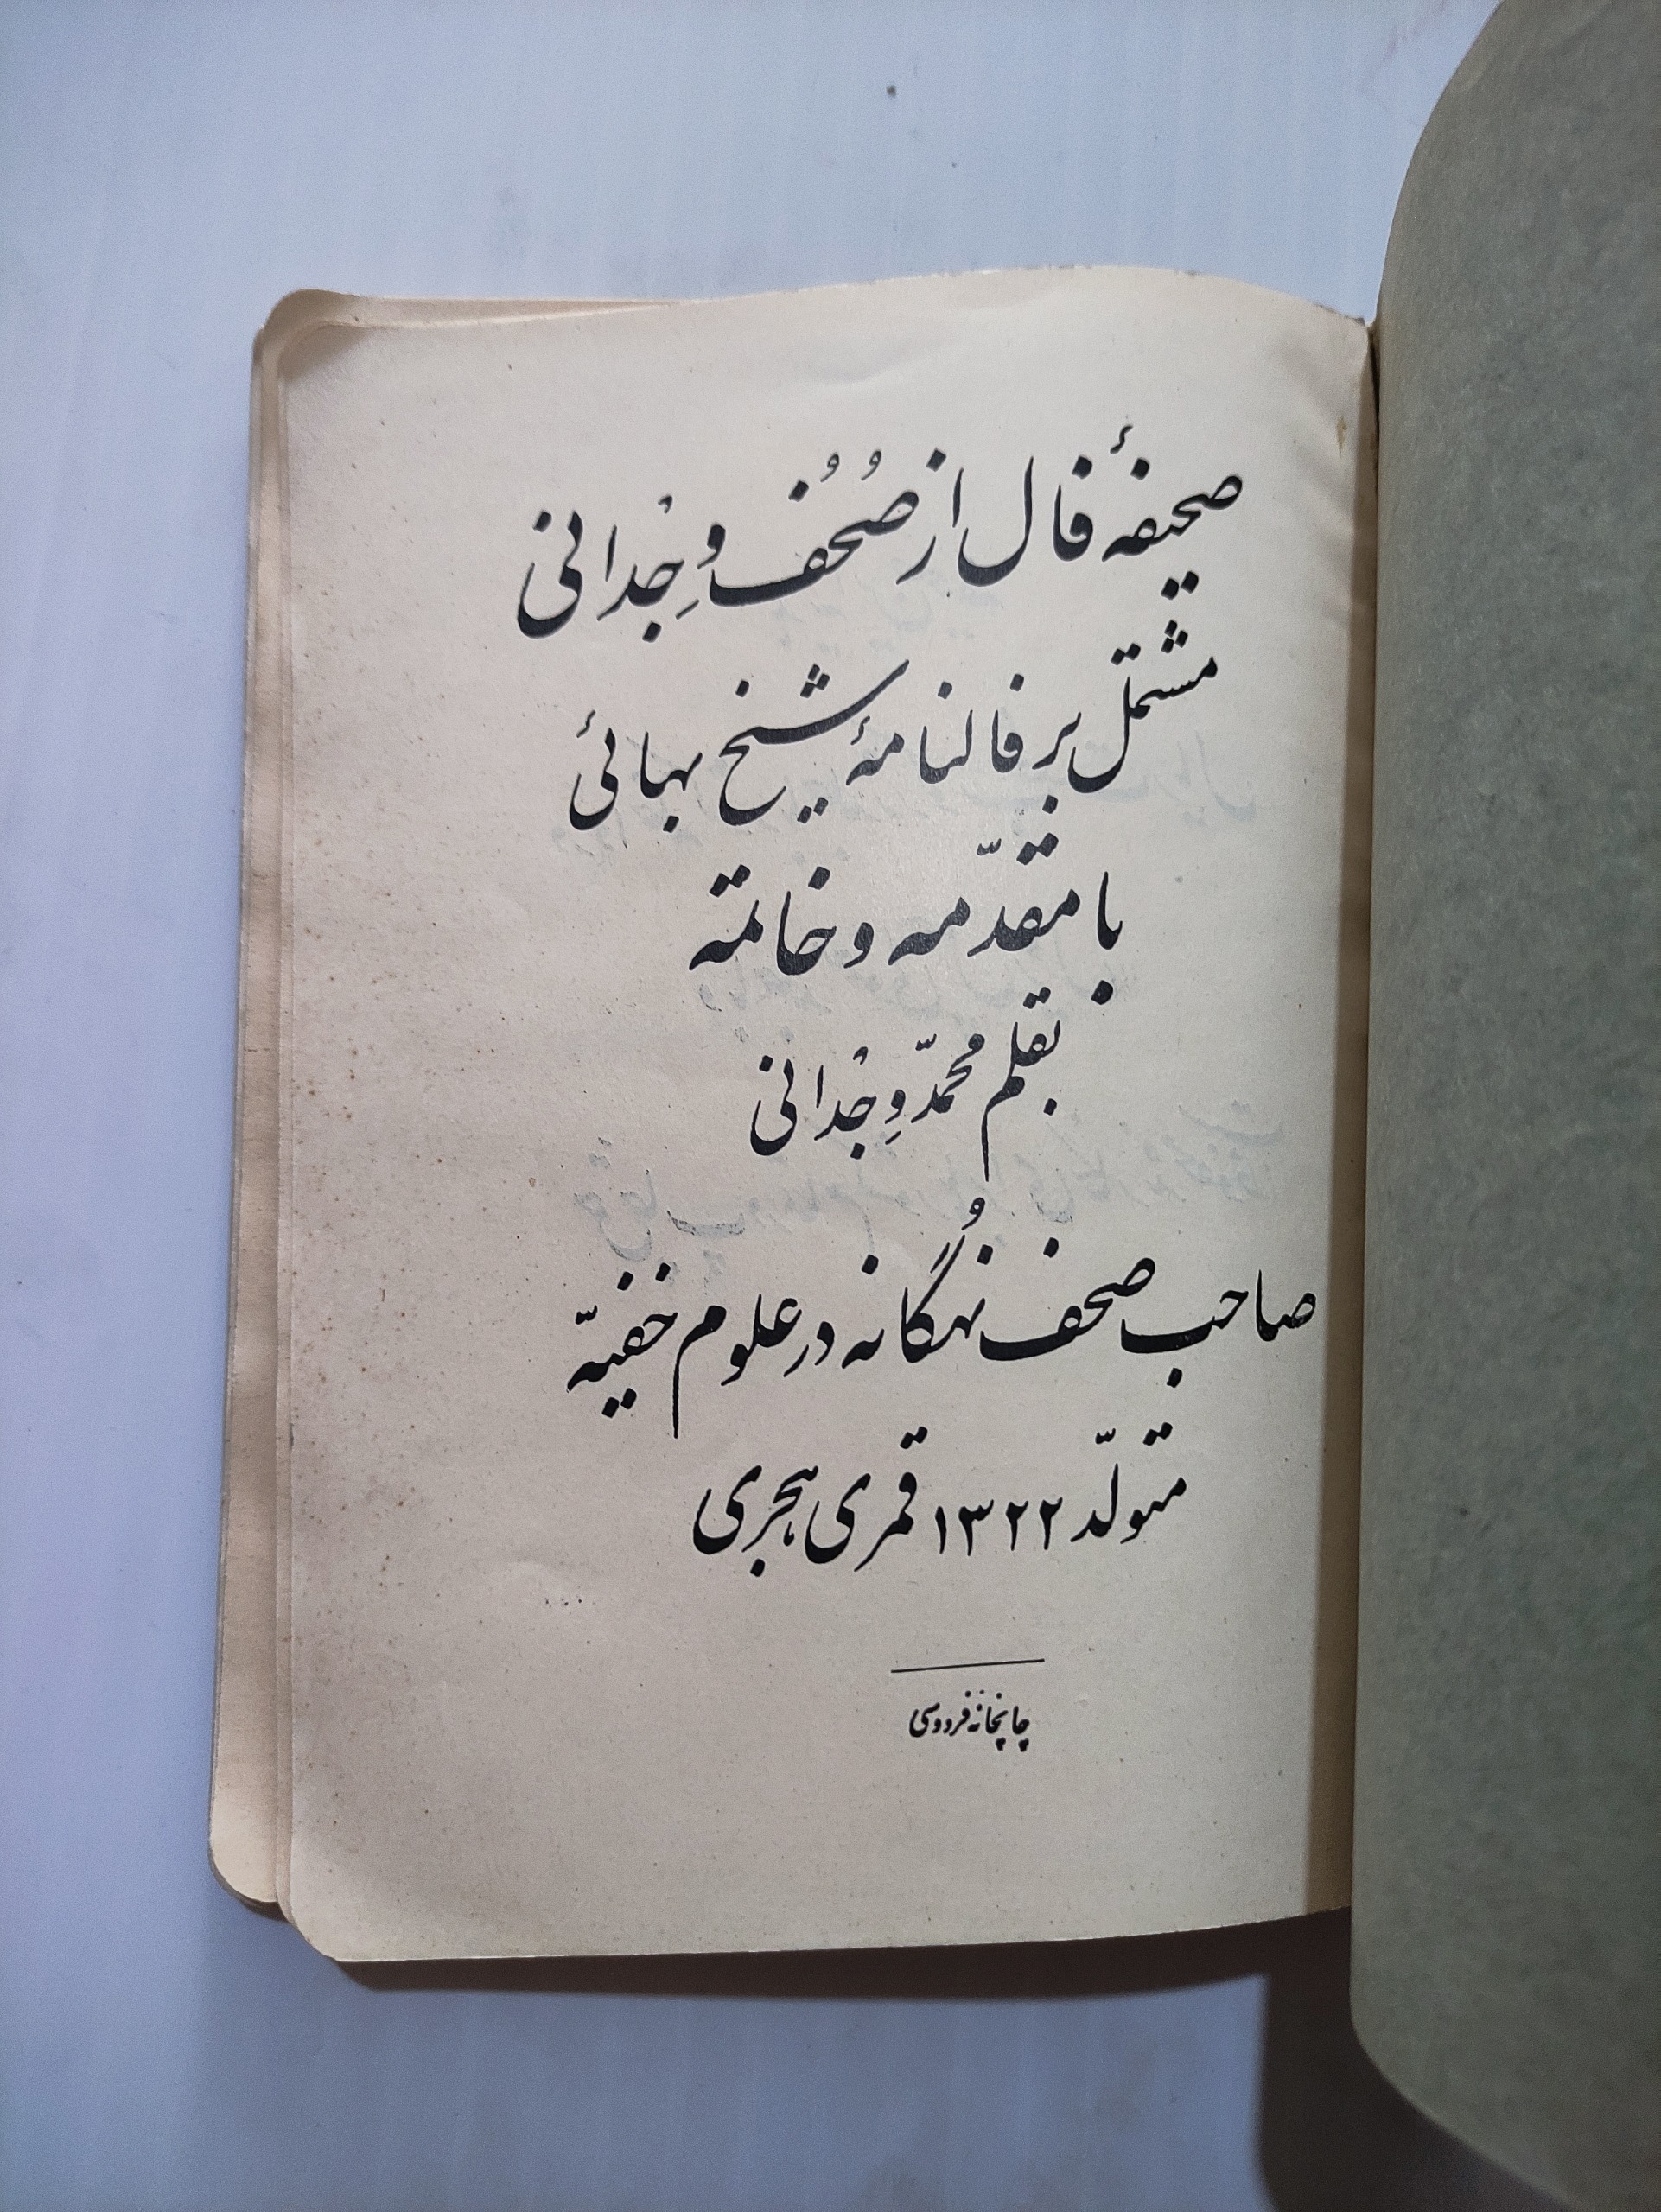 صحیفهٔ فال از صُحُف وِجْدانی
مشتمل بر فالنامهٔ شیخ بهائی
با مقدّمه و خاتمه
بقلم محمّد وِجْدانی
صاحب صحف نُهگانه در علوم خفیّه
متولّد ۱۳۲۲ قمری هجری
چاپخانه فردوسی